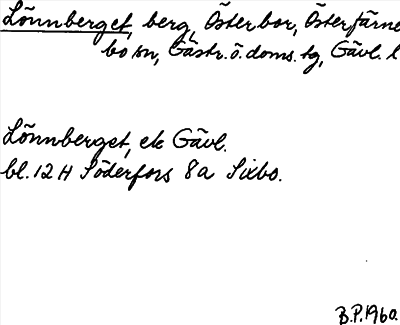 Lönnberget, berg, Österbor, Österfärne
bo sn, Gästr. ö. doms. tg, Gävl. l
Lönnberget, ek Gävl.
bl. 12 H Söderfors 8a Sixbo.
B.P. 1960.